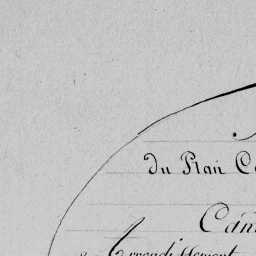 du Plan Ca
Can
Arrondissement